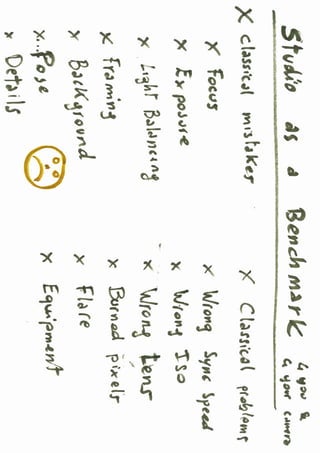 Studio as a Benchmark
↳ you &
↳ your camera
x classical mistakes
x Focus
x Exposure
x Light Balancing
x Framing
x Background
x...Pose
x Details
x Classical problems
x Wrong Sync Speed
x Wrong ISO
x Wrong Lens
x Burned pixels
x Flare
x Equipment